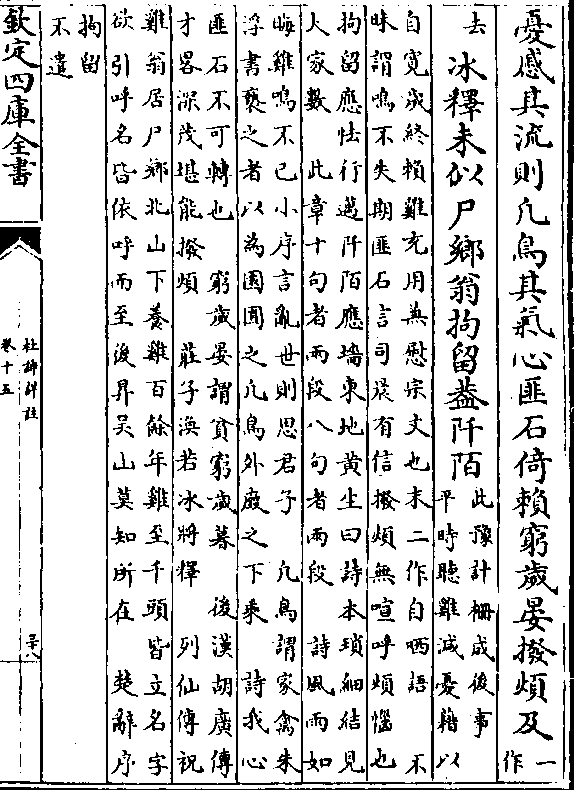 憂感其流則凡鳥其氣心匪石倚賴窮歲晏撥煩及一
作
去
冰釋未似尸鄉翁拘留蓋阡陌
此豫計柵成後事
平時聽雞減憂藉以
自寬歲終賴雞充用兼慰宗文也末二作自哂語 不
昧謂鳴不失期匪石言司晨有信撥煩無喧呼煩惱也
拘留應怯行邁阡陌應墻東地黃生曰詩本瑣細結見
大家數 此章十句者兩段八句者兩段 詩風雨如
晦雞鳴不已小序言亂世則思君子 凡鳥謂家禽朱
浮書褻之者以為園圃之凡鳥外廄之下乘 詩我心
匪石不可轉也 窮歲晏謂貧窮歲暮 後漢胡廣傳
才畧深茂堪能撥煩 莊子渙若冰將釋 列仙傳祝
雞翁居尸鄉北山下養雞百餘年雞至千頭皆立名字
欲引呼名皆依呼而至後昇吳山莫知所在 楚辭序
拘留
不遣
欽定四庫全書
杜詩詳註
卷十五